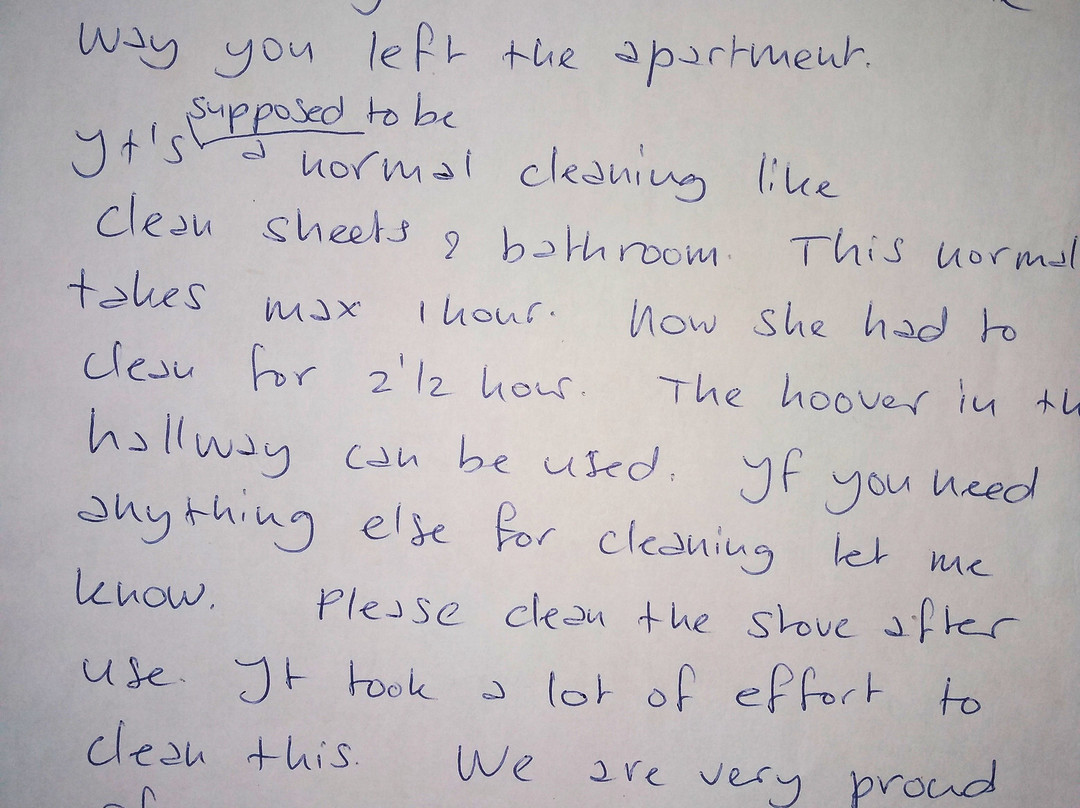 way you left the apartment.
supposed to be
It's a normal cleaning like
clean sheets & bathroom. This normal
takes max 1 hour. Now she had to
clean for 2 1/2 hour. The hoover in th
hallway can be used. If you need
anything else for cleaning let me
know. Please clean the stove after
use. It took a lot of effort to
clean this. We are very proud
of